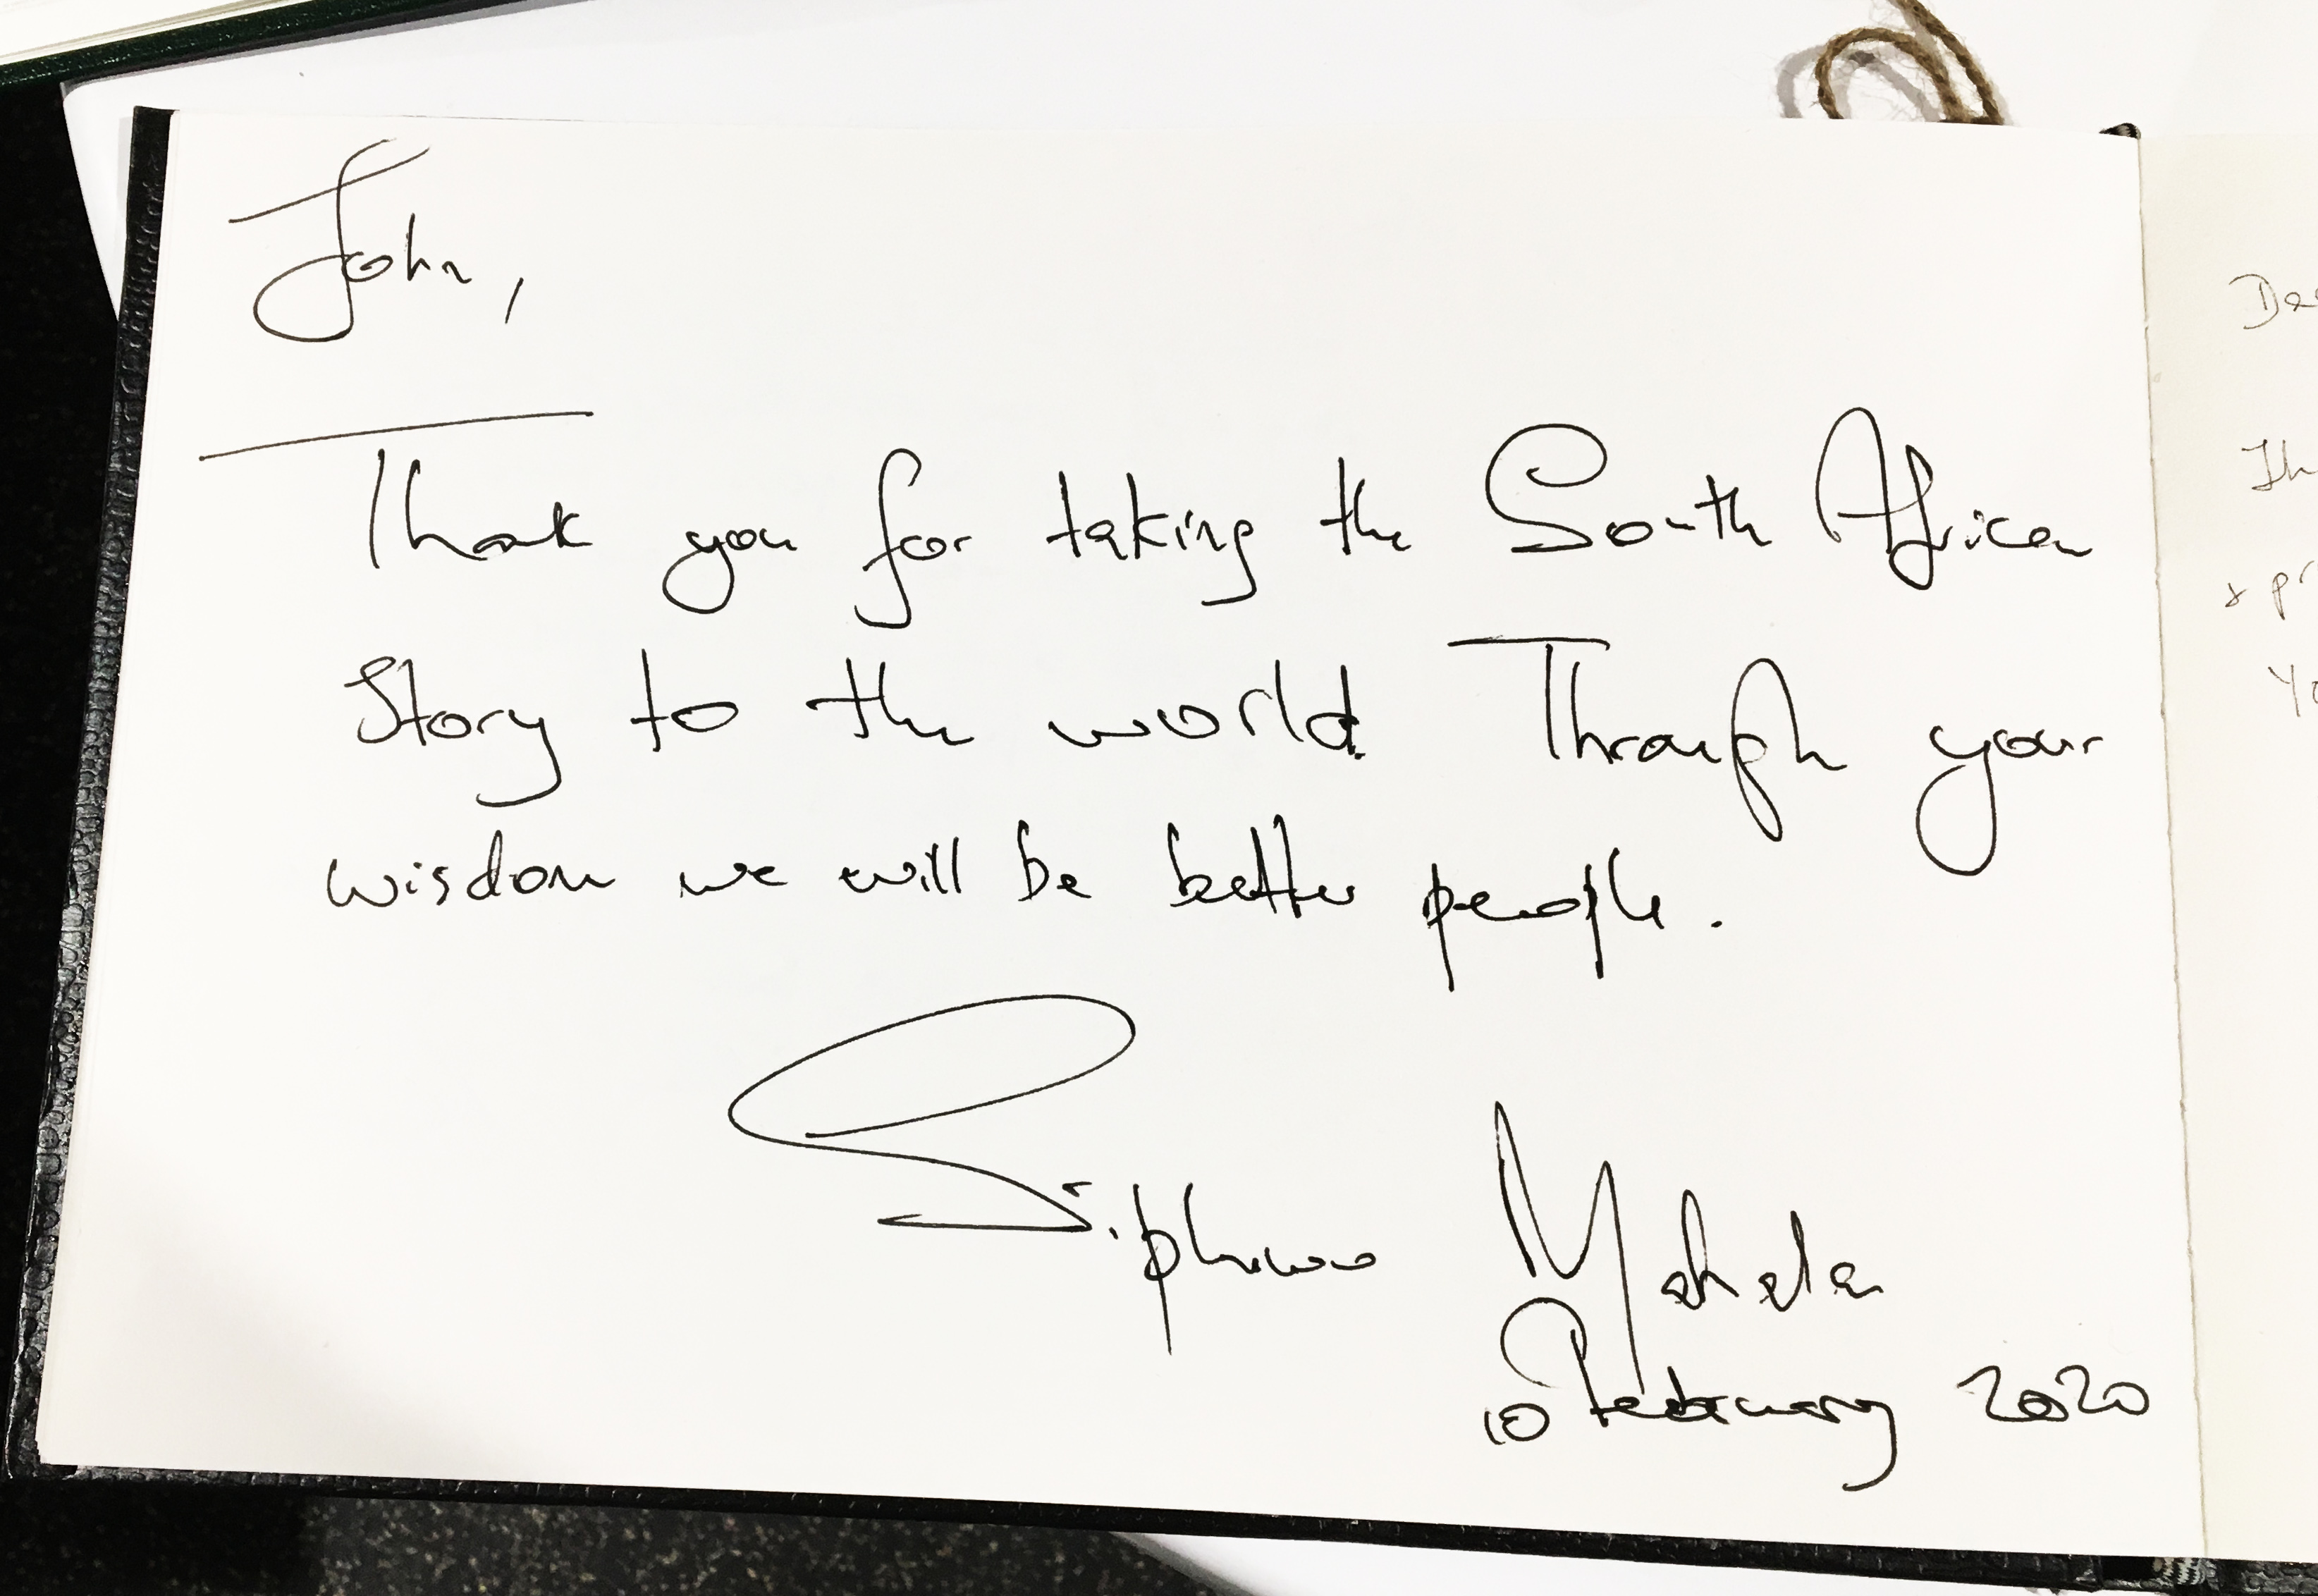 John,
Thank you for taking the South African
Story to the world. Through your
wisdom we will be better people.
Siphiwo Mahala
10 February 2020
De
Th
& pr
Yo